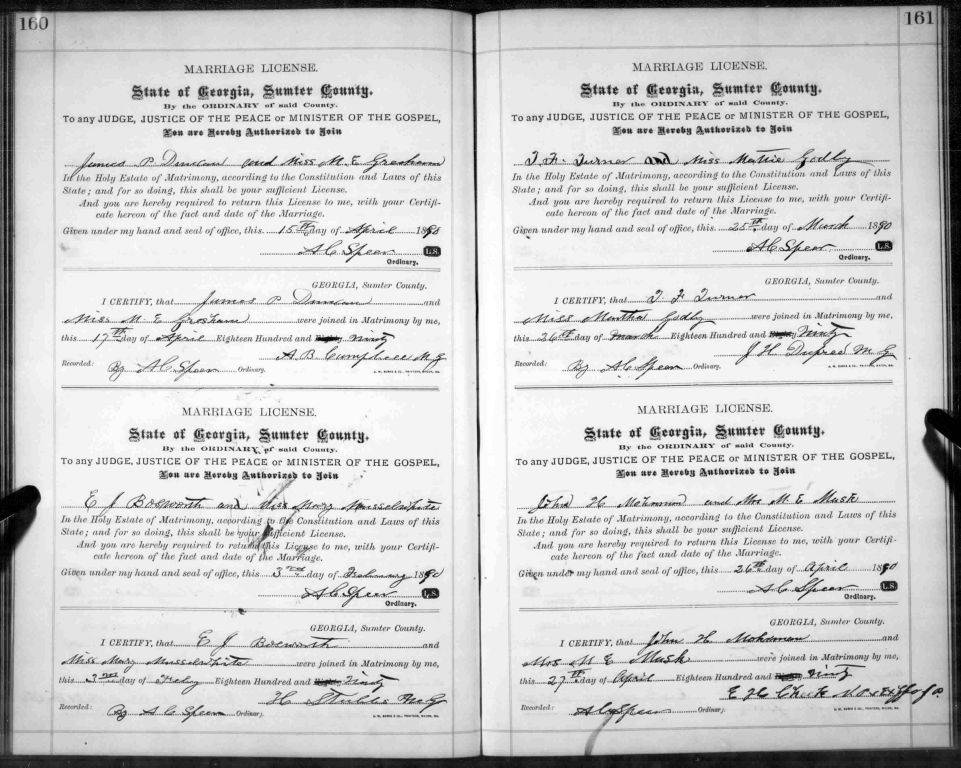 160
MARRIAGE LICENSE.
State of Georgia, Sumter County.
By the ORDINARY of said County.
To any JUDGE, JUSTICE OF THE PEACE or MINISTER OF THE GOSPEL,
You are Hereby Authorized to Join
James P. Duncan and Miss M. E Gresham
In the Holy Estate of Matrimony, according to the Constitution and Laws of this
State; and for so doing, this shall be your sufficient License.
And you are hereby required to return this License to me, with your Certifi-
cate hereon of the fact and date of the Marriage.
Given under my hand and seal of office, this 15th day of April 1890
A C Speer L.S.
Ordinary.
GEORGIA, Sumter County.
I CERTIFY, that James P Duncan and
Miss M. E Gresham were joined in Matrimony by me,
this 17th day of April Eighteen Hundred and Eighty Ninty
A. B. Campbell M. G
Recorded: By A. C. Speer Ordinary.
MARRIAGE LICENSE.
State of Georgia, Sumter County.
By the ORDINARY of said County.
To any JUDGE, JUSTICE OF THE PEACE or MINISTER OF THE GOSPEL,
You are Hereby Authorized to Join
E J Bosworth and Miss Mary Musselwhite
In the Holy Estate of Matrimony, according to the Constitution and Laws of this
State; and for so doing, this shall be your sufficient License.
And you are hereby required to return this License to me, with your Certifi-
cate hereon of the fact and date of the Marriage.
Given under my hand and seal of office, this 3rd day of February 1890
A C Speer L.S.
Ordinary.
GEORGIA, Sumter County.
I CERTIFY, that E J Bosworth and
Miss Mary Musselwhite were joined in Matrimony by me,
this 3rd day of Feby Eighteen Hundred and Eighty Ninty
H. Stubbs
Recorded: By A. C. Speer Ordinary.
161
MARRIAGE LICENSE.
State of Georgia, Sumter County.
By the ORDINARY of said County.
To any JUDGE, JUSTICE OF THE PEACE or MINISTER OF THE GOSPEL,
You are Hereby Authorized to Join
T. F. Turner and Miss Mattie Godby
In the Holy Estate of Matrimony, according to the Constitution and Laws of this
State; and for so doing, this shall be your sufficient License.
And you are hereby required to return this License to me, with your Certifi-
cate hereon of the fact and date of the Marriage.
Given under my hand and seal of office, this 25th day of March 1890
A C Speer L.S.
Ordinary.
GEORGIA, Sumter County.
I CERTIFY, that T F Turner and
Miss Martha Godby were joined in Matrimony by me,
this 26th day of March Eighteen Hundred and Eighty Ninty
J. H. Dupree M. G
Recorded: By A. C. Speer Ordinary.
MARRIAGE LICENSE.
State of Georgia, Sumter County.
By the ORDINARY of said County.
To any JUDGE, JUSTICE OF THE PEACE or MINISTER OF THE GOSPEL,
You are Hereby Authorized to Join
John H Mohaman and Mrs M. E Mask
In the Holy Estate of Matrimony, according to the Constitution and Laws of this
State; and for so doing, this shall be your sufficient License.
And you are hereby required to return this License to me, with your Certifi-
cate hereon of the fact and date of the Marriage.
Given under my hand and seal of office, this 26th day of April 1890
A C Speer L.S.
Ordinary.
GEORGIA, Sumter County.
I CERTIFY, that John H Mohaman and
Mrs M E Mask were joined in Matrimony by me,
this 27th day of April Eighteen Hundred and Eighty Ninty
E. H. Cheek
Recorded: A C Speer Ordinary.